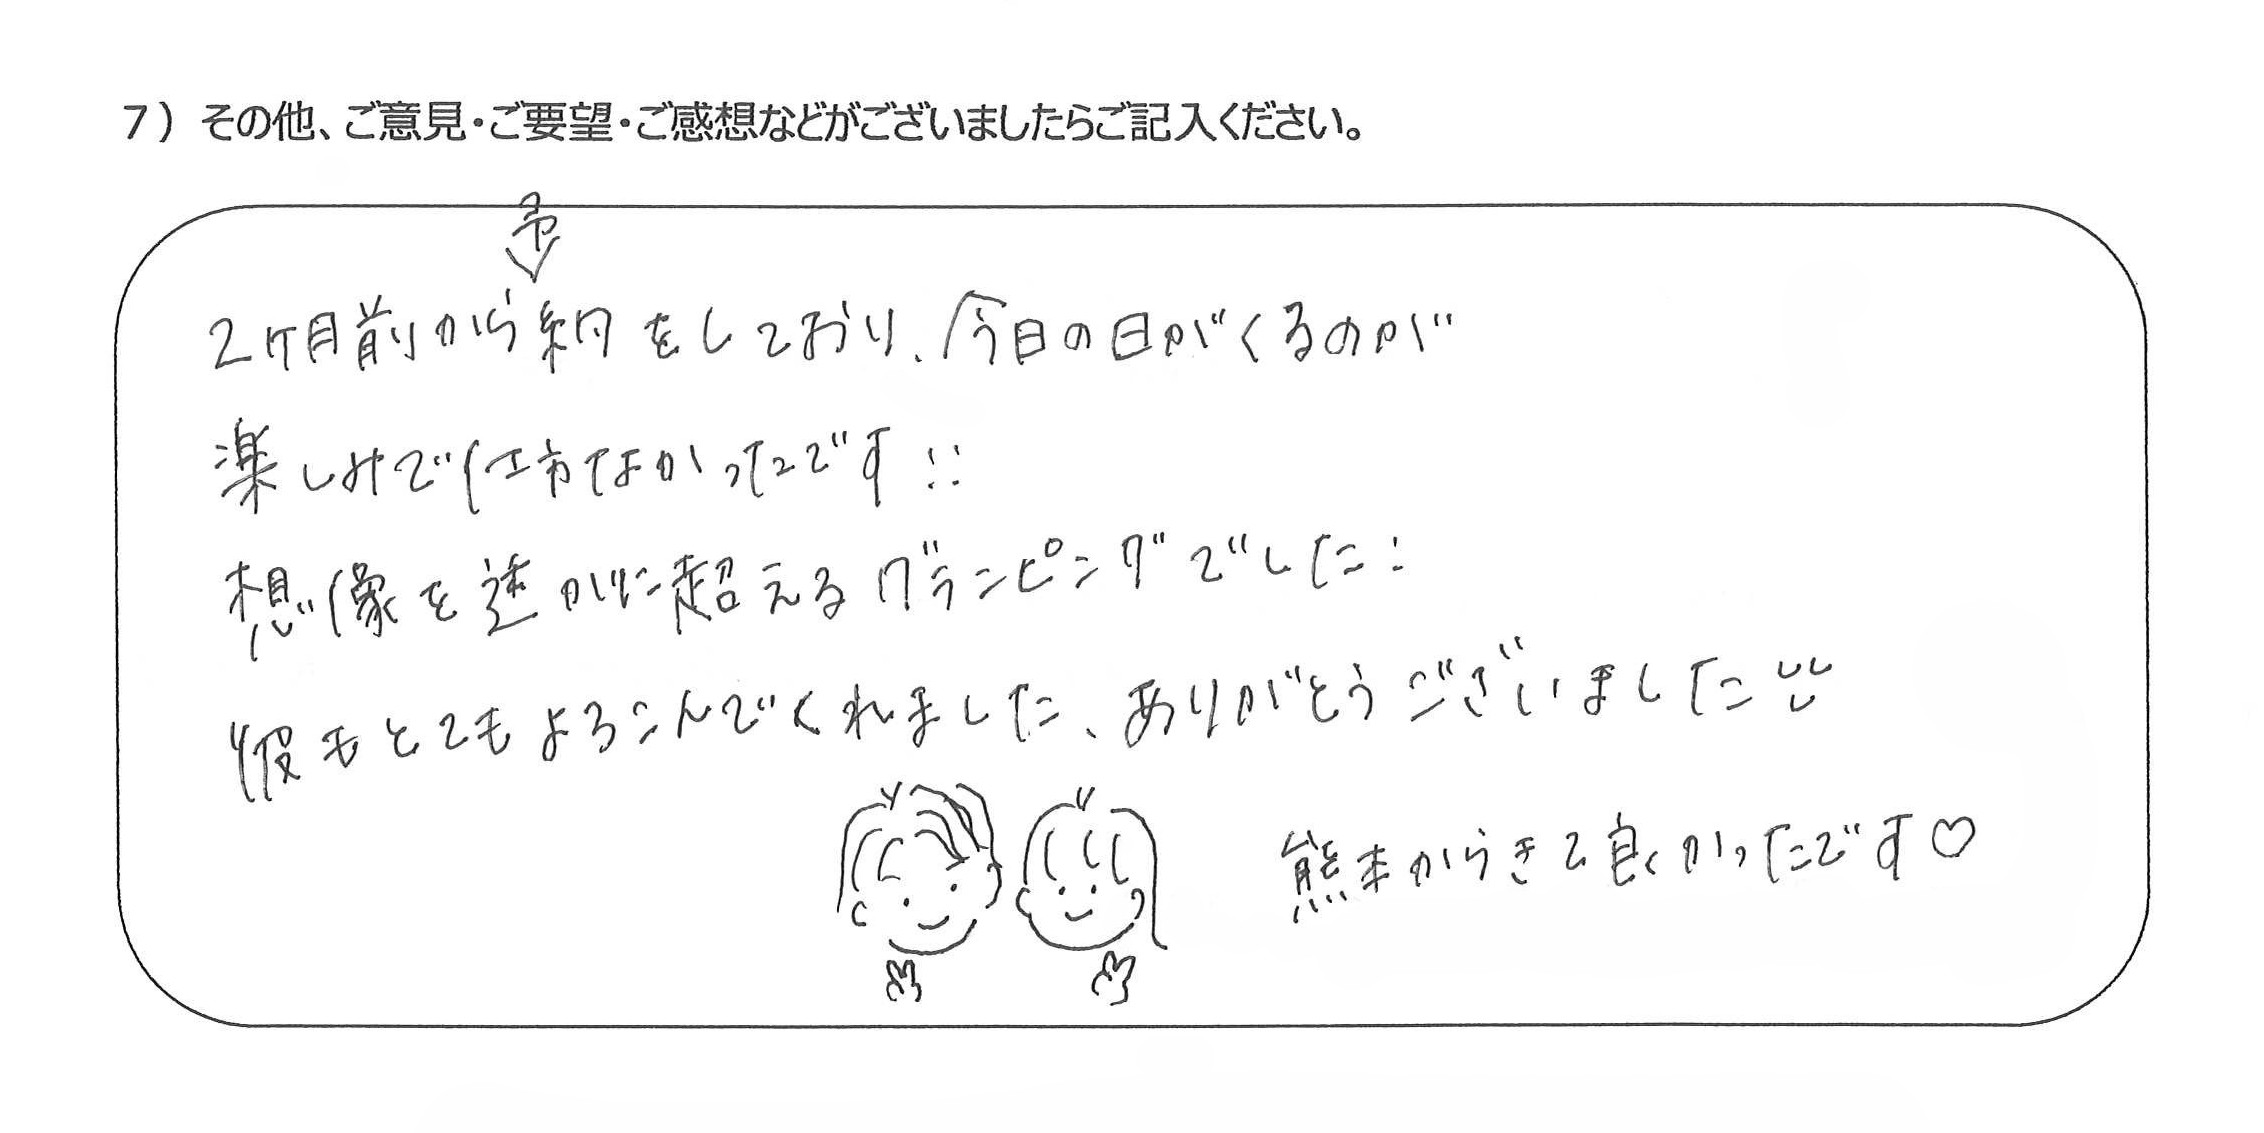 7) その他、ご意見・ご要望・ご感想などがございましたらご記入ください。
2ヶ月前から予約をしており、今日の日がくるのが
楽しみで仕方なかったです!!
想像を遥かに超えるグランピングでした!
彼もとてもよろこんでくれました、ありがとうございました
熊本からきて良かったです♡